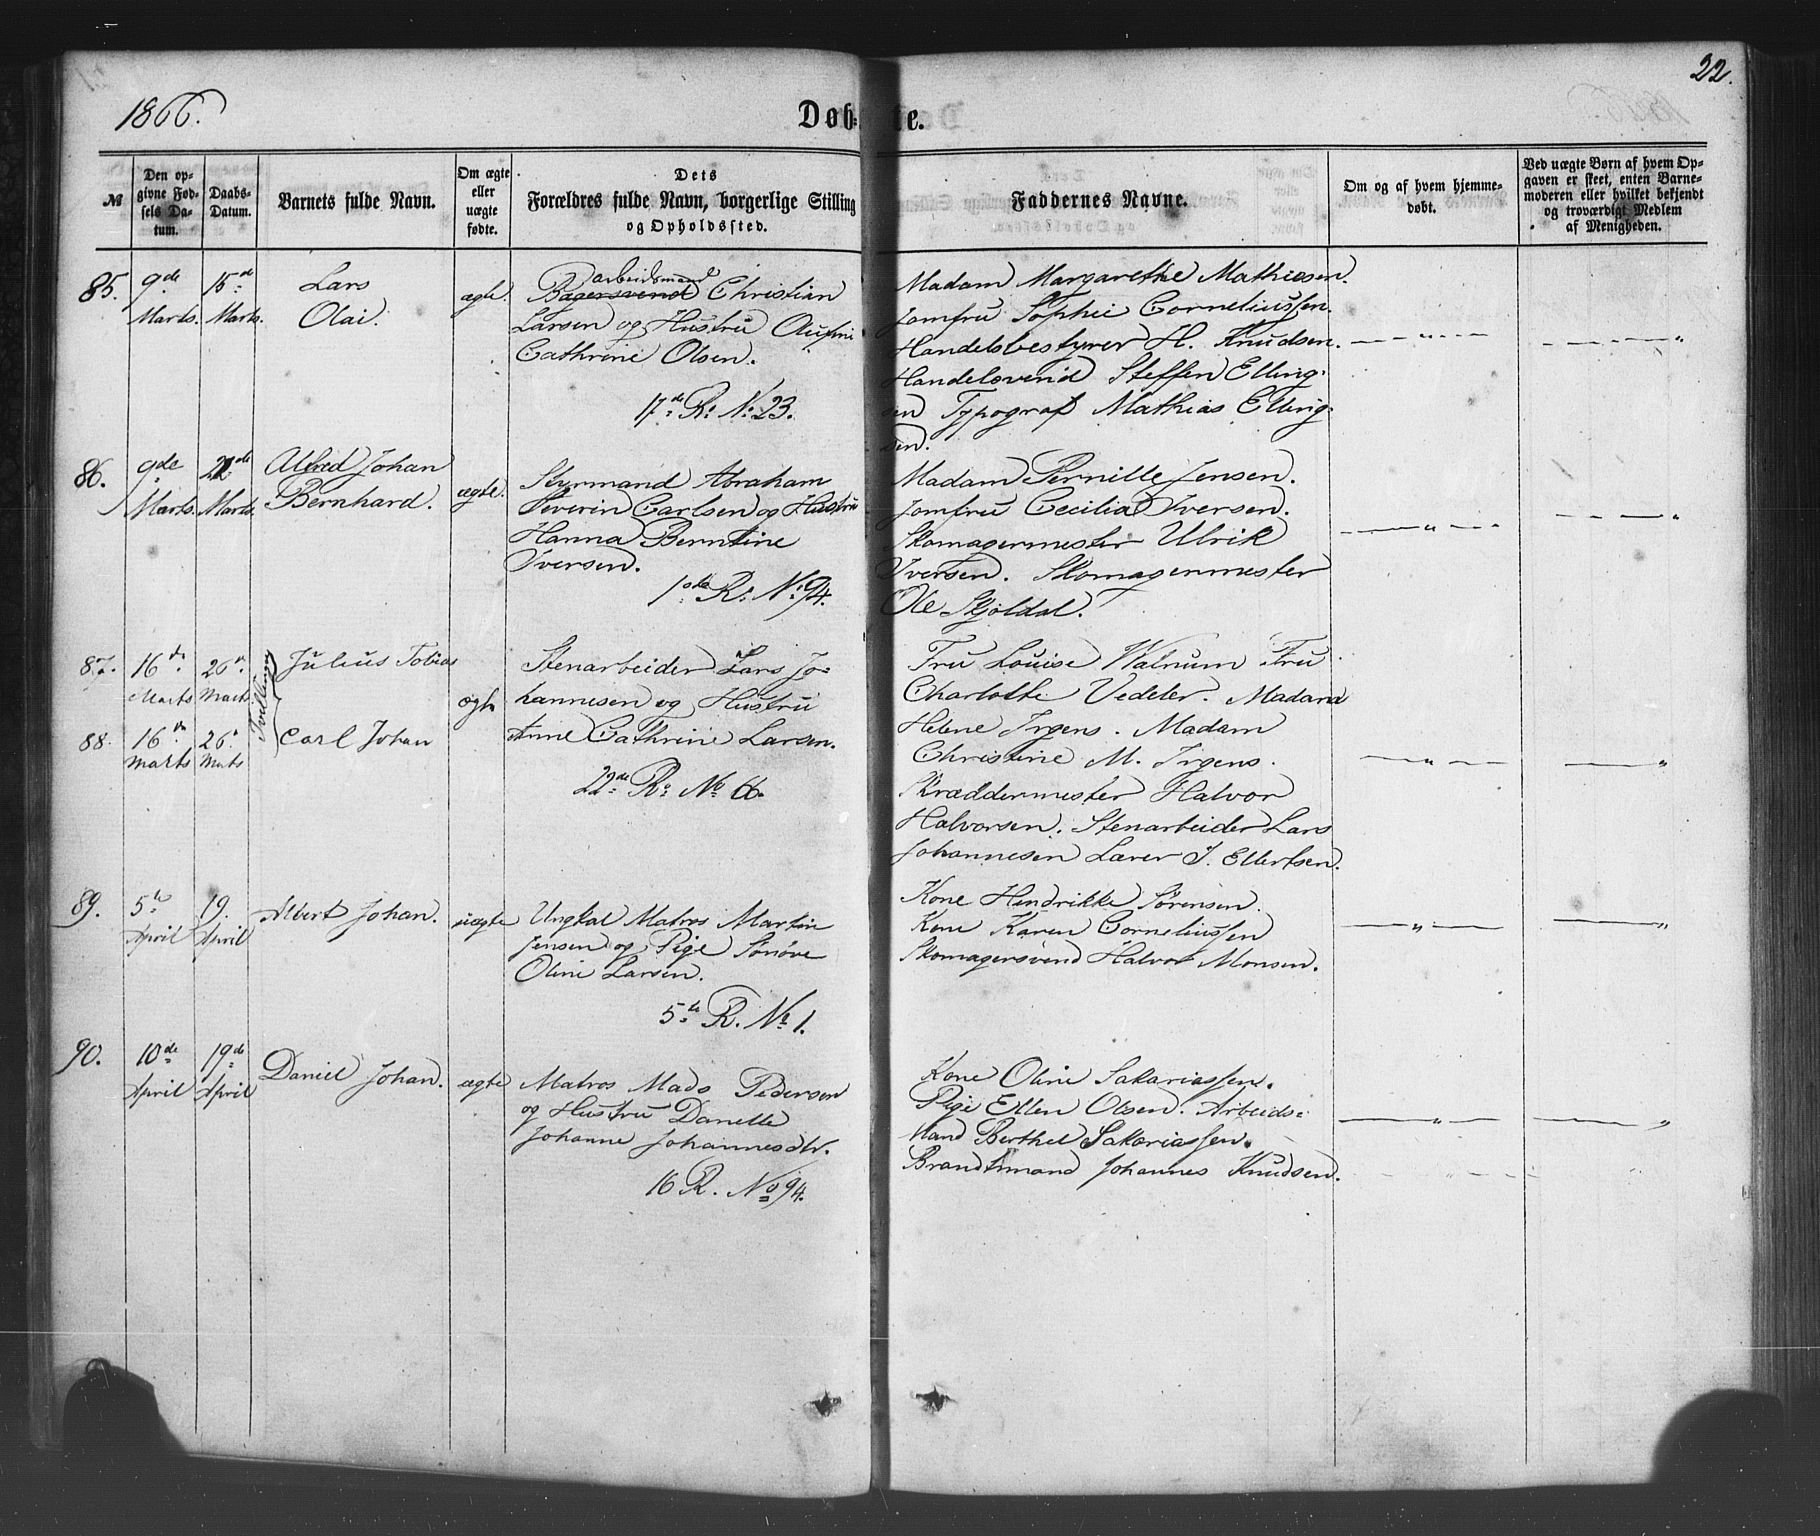 1866.
Døbte.
22.
№
Den opgivne Fødsels Datum.
Daabs-Datum.
Barnets fulde Navn.
Om ægte eller uægte fødte.
Dets Forældres fulde Navn, borgerlige Stilling og Opholdssted.
Faddernes Navne.
Om og af hvem hjemmedøbt.
Ved uægte Børn af hvem Opgaven er skeet, enten Barnemoderen eller hvilket bekjendt og troværdigt Medlem af Menigheden.
85.
9de Marts.
15de Marts.
Lars
Olai.
ægte.
arbeidsmand
Bagersvend Christian
Larsen og Hustru Olufine
Cathrine Olsen.
17de R: No 23.
Madam Margarethe Mathiesen.
Jomfru Sophie Corneliussen.
Handelsbestyrer H. Knudsen.
Handelsvend Steffen Elling-
sen Typograf Mathias Elling-
sen.
86.
9de Marts.
Marts.
Alfred Johan
Bernhard.
ægte.
Styrmand Abraham
Severin Carlsen og Hustru
Hanna Berntine
Iversen.
1ste R: No 94.
Madam Pernille Jensen.
Jomfru Cecilia Iversen.
Skomagermester Ulrik
Iversen. Skomagermester
Ole Skjoldal.
87.
16de Marts
26de Marts
Tvillinger
Julius Tobias
88.
16de Marts
26de Marts
Carl Johan
ægte
Stenarbeider Lars Jo-
hannesen og Hustru
Anne Cathrine Larsen.
22de R: No 66.
Fru Louise Walnum Fru
Charlotte Vedeler. Madam
Helene Irgens. Madam
Christine M. Irgens.
Skræddermester Halvor
Halvorsen. Stenarbeider Lars
Johannesen Lærer J. Ellertsen.
89.
5te April
19. April
Albert Johan.
uægte
Ungkal Matros Martin
Jensen og Pige Sønøve
Oline Larsen.
5te R. No 1.
Kone Hendrikke Sørensen.
Kone Karen Corneliussen
Skomagersvend Halvor Monsen.
90.
10de April
19de April
Daniel Johan.
ægte
Matros Mads Pedersen
og Hustru Danelle
Johanne Johannesdtr.
16 R. No 94.
Kone Oline Sakariassen.
Pige Ellen Olsen. Arbeids-
mand Berthel Sakariassen.
Brandtmand Johannes Knudsen.